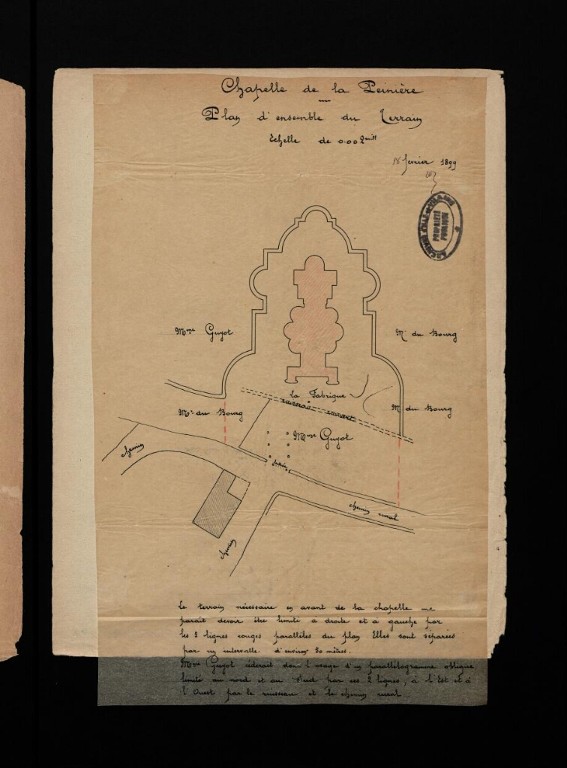 Chapelle de la Peinière
Plan d'ensemble du Terrain
Echelle de 0.002
février 1899
PROPRIÉTÉ
Mme Guyot
Mr du Bourg
la Fabrique
ruisseau courant
Mr du Bourg
Mr du Bourg
Mme Guyot
chemin
chemin rural
chemin
Le terrain nécessaire en avant de la chapelle me
parait devoir être limité à droite et à gauche par
les 2 lignes rouges parallèles du plan. Elles sont séparées
par un intervalle d'environ 30 mètres.
Mme Guyot cèderait donc l'usage d'un parallélogramme oblique
limité au nord et au Sud par ces 2 lignes, à l'Est et à
l'Ouest par le ruisseau et le chemin rural